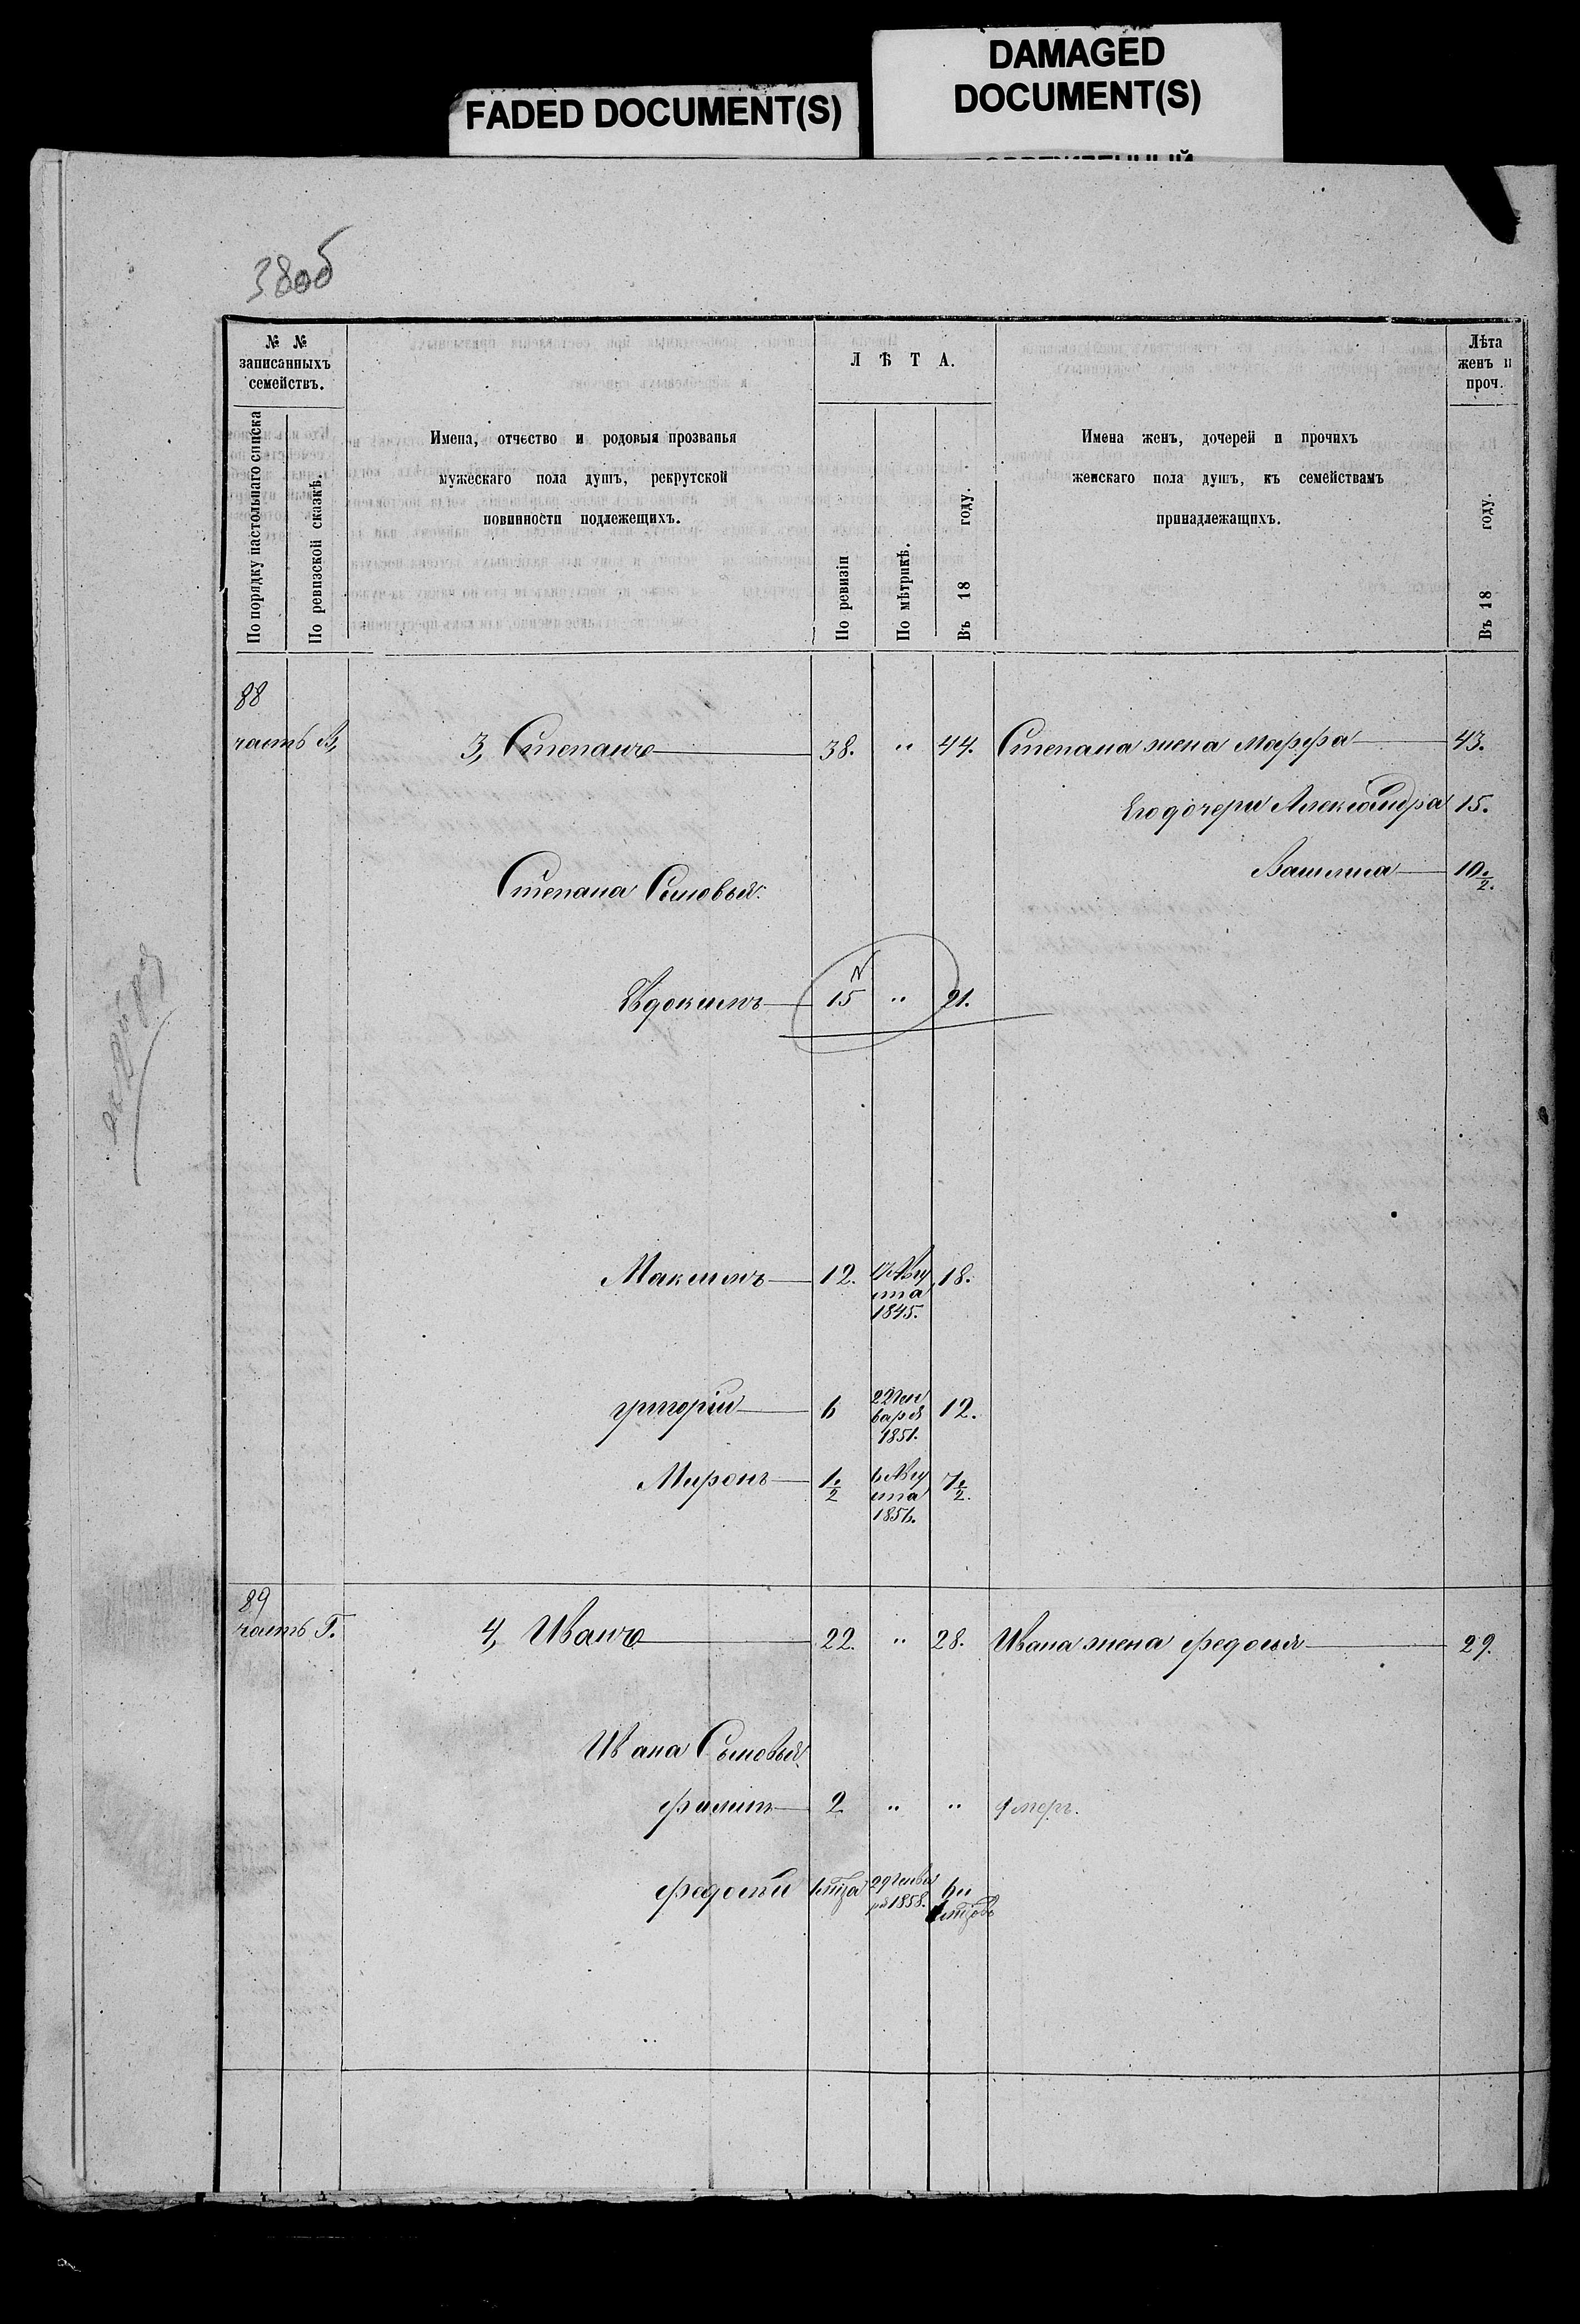 FADED DOCUMENT(S)
DAMAGED
DOCUMENT(S)
38об
№ №
записанныхъ
семействъ.
По порядку настольнаго списка
По ревизской сказкѣ.
Имена, отчество и родовыя прозванья
мужескаго пола душъ, рекрутской
повинности подлежещихъ.
ЛѢТА.
По ревизіи
По мѣтрикѣ.
Въ 18 году.
Имена женъ, дочерей и прочихъ
женскаго пола душъ, къ семействамъ
принадлежащихъ.
Лѣта
женъ и
проч.
Въ 18 году.
88
часть В,
3, Степанъ 38. " 44. Степана жена Марфа 43.
Его дочери Александра 15.
10 1/2.
Степана Сыновья:
Евдокимъ 15 " 21.
Максимъ 12. Авгу 18.
ста
1845.
григорій 6 22 Ген 12.
варя
1851.
Миронъ 1/2 6 Авгу 7 1/2.
ста
1856.
89
часть Г.
4, Иванъ 22. " 28. Ивана жена федосья 29.
Ивана Сыновья
филипъ 2 " " умеръ.
федосій 29 Генва
ря 1858.